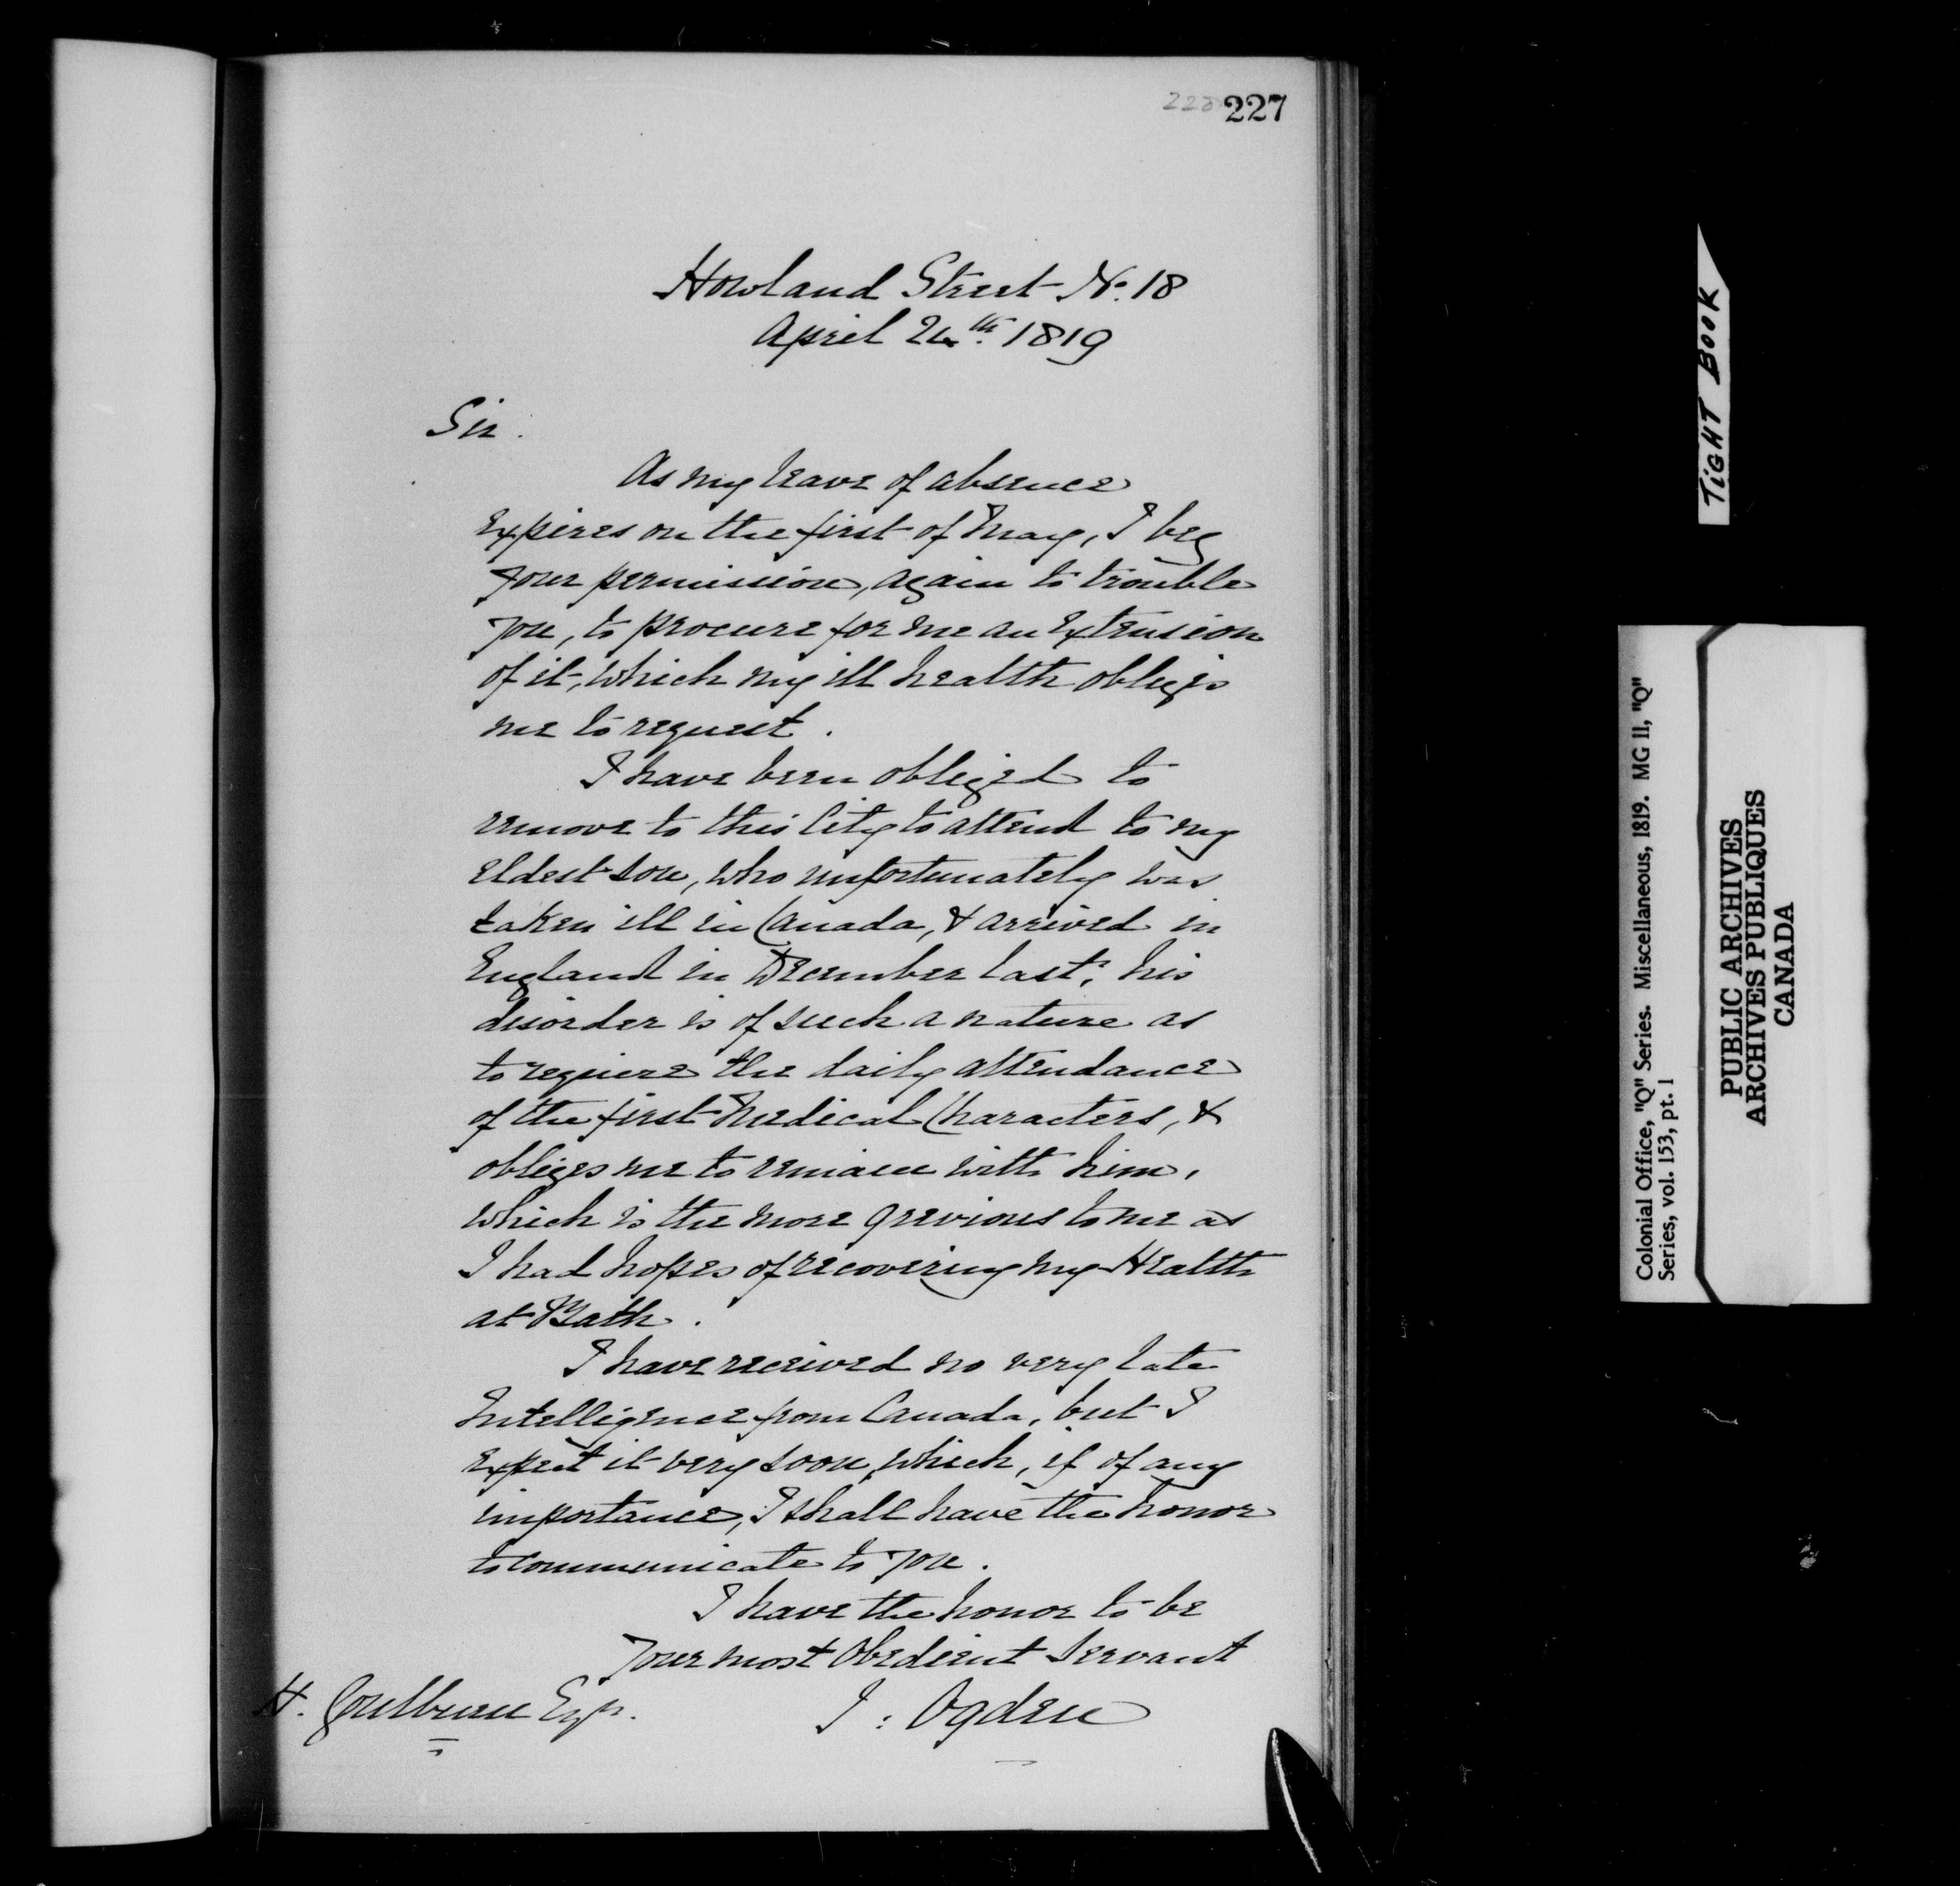 227
Howland Street No. 18
April 24th. 1819
Sir.
As my leave of absence
expires on the first of May, I beg
your permission, again to trouble
you, to procure for me an extension
of it, which my ill health obliges
me to request.
I have been obliged to
remove to this City to attend to my
eldest son, who unfortunately was
taken ill in Canada, & arrived in
England in December last; his
disorder is of such a nature as
to require the daily attendance
of the first Medical Characters, &
obliges me to remain with him,
which is the more grevious to me as
I had hopes of recovering my Health
at Bath.
I have received no very late
Intelligence from Canada, but I
expect it very soon, which, if of any
importance, I shall have the honor
to communicate to you.
I have the honor to be
Your most Obedient Servant
H. Goulburn Esqr.
I: Ogden
TIGHT BOOK
Colonial Office, "Q" Series. Miscellaneous, 1819. MG 11, "Q"
Series, vol. 153, pt. 1
PUBLIC ARCHIVES
ARCHIVES PUBLIQUES
CANADA